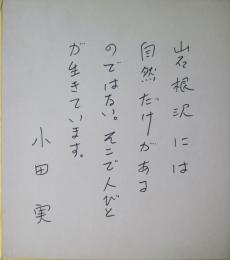 岩根沢には
自然だけがある
のではない。そこで人びと
が生きています。
小田実